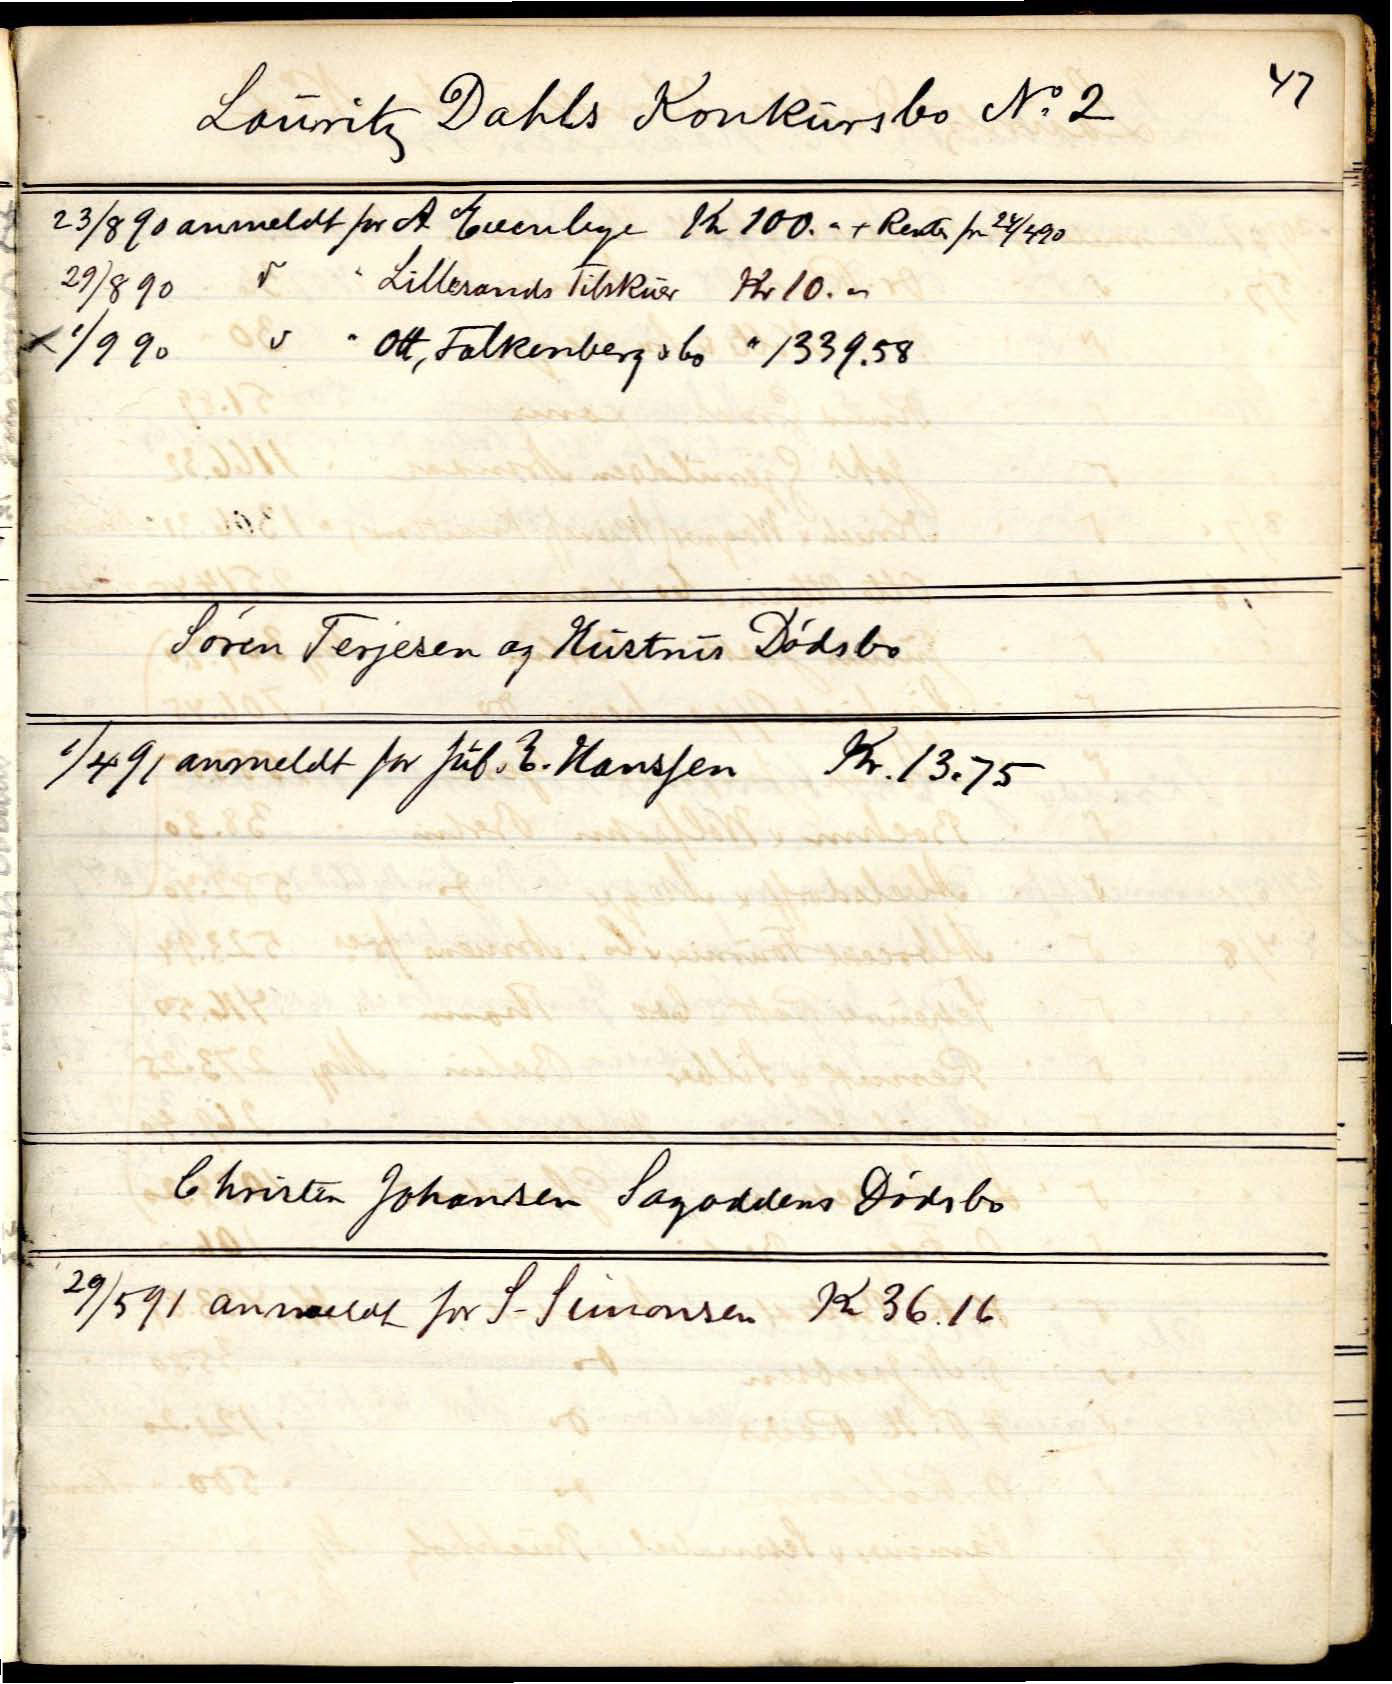 47
Lauritz Dahls Konkursbo No. 2
23/8 90 anmeldt for A Evenbye Kr 100. " + Renter fra 24/4 90
29/8 90 v " Lillesands Tilskuer Kr 10. "
x 1/9 90 v " Ott, Falkenbergs bo " 1339.58
Søren Terjesen og Hustrus Dødsbo
1/4 91 anmeldt for Jul. E. Hanssen Kr. 13.75
Christen Johansen Sagoddens Dødsbo
29/5 91 anmeldt for S. Simonsen Kr 36.16